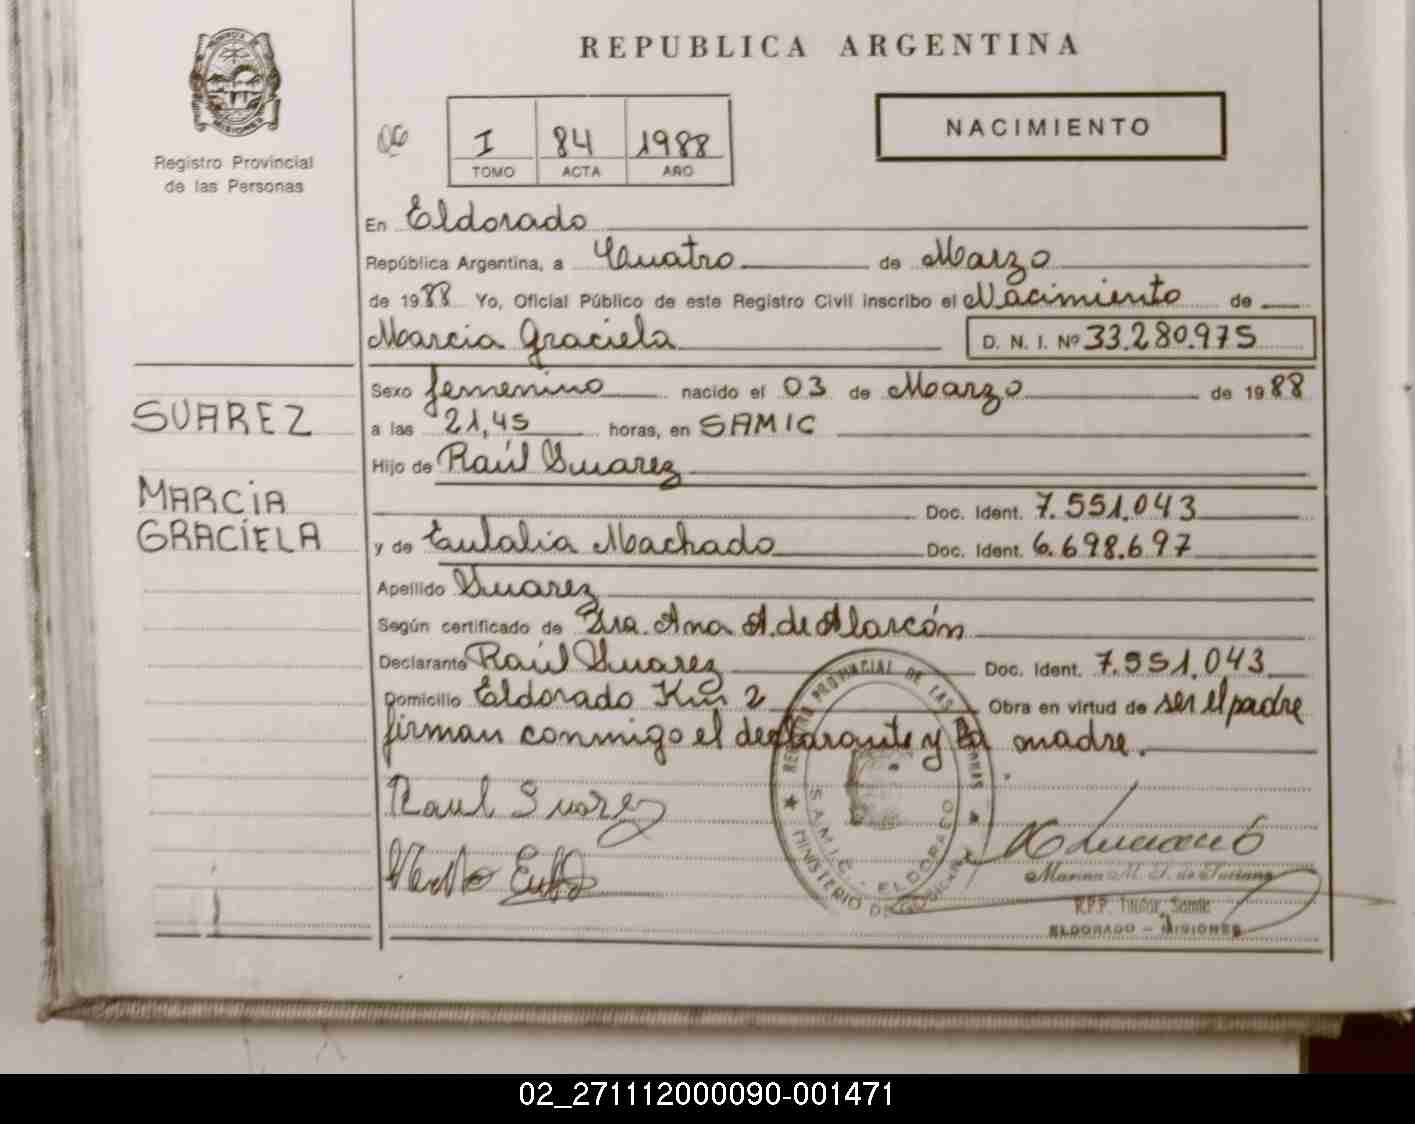 PROVINCIA DE
MISIONES
Registro Provincial
de las Personas
REPUBLICA ARGENTINA
I 84 1988
TOMO ACTA AÑO
NACIMIENTO
En Eldorado
República Argentina, a Cuatro de Marzo
de 1988 Yo, Oficial Público de este Registro Civil inscribo el Nacimiento de
Marcia Graciela D. N. I. Nº 33.280.975
Sexo femenino nacido el 03 de Marzo de 1988
a las 21,45 horas, en SAMIC
Hijo de Raúl Suarez
Doc. Ident. 7.551.043
y de Eulalia Machado Doc. Ident. 6.698.697
Apellido Suarez
Según certificado de Dra. Ana A. de Alarcón
Declarante Raúl Suarez Doc. Ident. 7.551.043
Domicilio Eldorado Km 2 Obra en virtud de ser el padre
firman conmigo el declarante y la madre.
SUAREZ
MARCIA
GRACIELA
Raul Suarez
REGISTRO PROVINCIAL DE LAS PERSONAS
S.A.M.I.C. - ELDORADO
MINISTERIO DE
Marina M. de
R.P.P. Titular Samic
ELDORADO - MISIONES
02_271112000090-001471